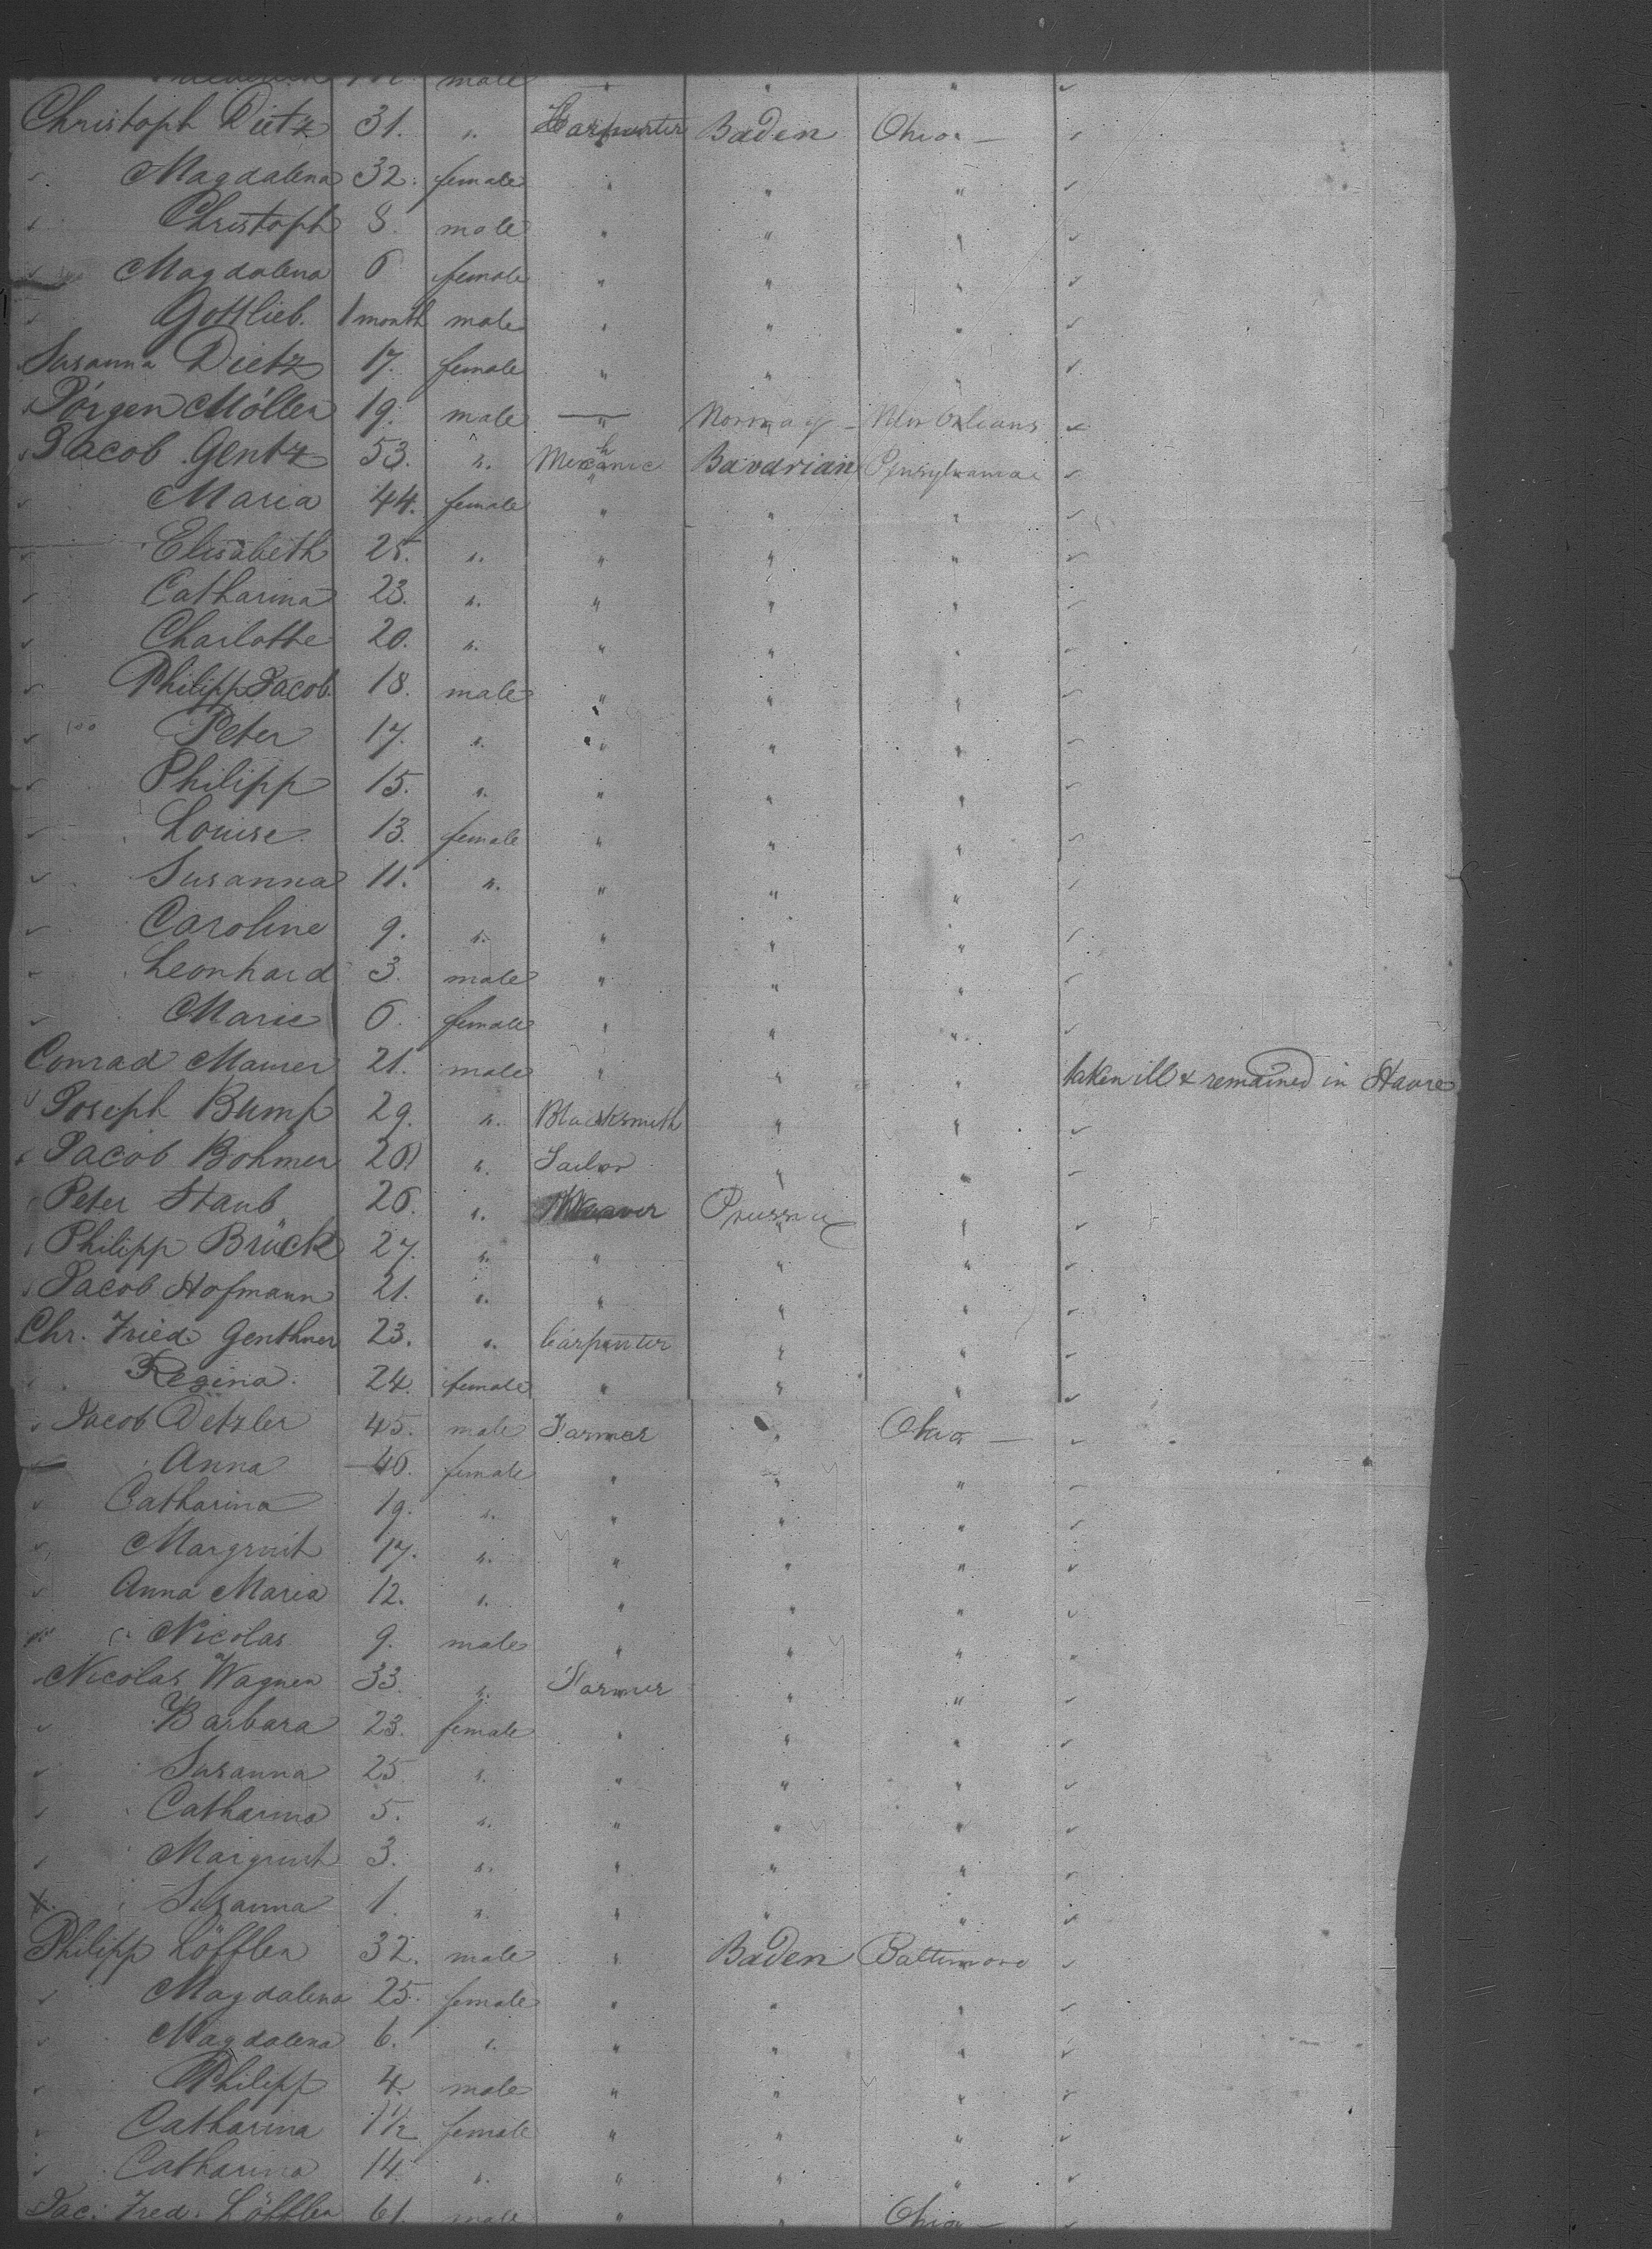 male " " "
Christoph Dietz 31. " Carpenter Baden Ohio —
Magdalena 32. female " " "
Christoph 8. male " " "
Magdalena 6 female " " "
Gottlieb. 1 month male " " "
Susanna Dietz 17. female " " "
Jörgen Möller 19. male — " Norway - New Orleans
Jacob Gentz 53. " Mechanic Bavarian Pensylvaniae
Maria 44. female " " "
Elisabeth 25. " " " "
Catharina 23. " " " "
Charlotte 20. " " " "
Philipp Jacob 18. male " " "
Peter 17. " " " "
Philipp 15. " " " "
Louise 13. female " " "
Susanna 11. " " " "
Caroline 9. " " " "
Leonhard 3. male " " "
Marie 6. female " " "
Conrad Maurer 21. male " " " taken ill & remained in Havre
Joseph Bump 29. " Blacksmith " "
Jacob Bohmer 20 " Tailor " "
Peter Staub 26. " Weaver Prussia "
Philipp Brück 27. " " " "
Jacob Hofmann 21. " " " "
Chr. Fried. Genthner 23. " Carpenter " "
Regina. 24. female " " "
Jacob Detzler 45. male Farmer " Ohio —
Anna 40. female " " "
Catharina 19. " " " "
Margruit 17. " " " "
Anna Maria 12. " " " "
Nicolas 9. male " " "
Nicolas Wagner 33. " Farmer " "
Barbara 23. female " " "
Susanna 25 " " " "
Catharina 5. " " " "
Margruit 3. " " " "
x. Susanna 1. " " " "
Philipp Löffler 32. male " Baden Baltimore
Magdalena 25. female " " "
Magdalena 6. " " " "
Philipp 4. male " " "
Catharina 1½ female " " "
Catharina 14 " " " "
Jac: Fred. Löffler 61. male " " Ohio —